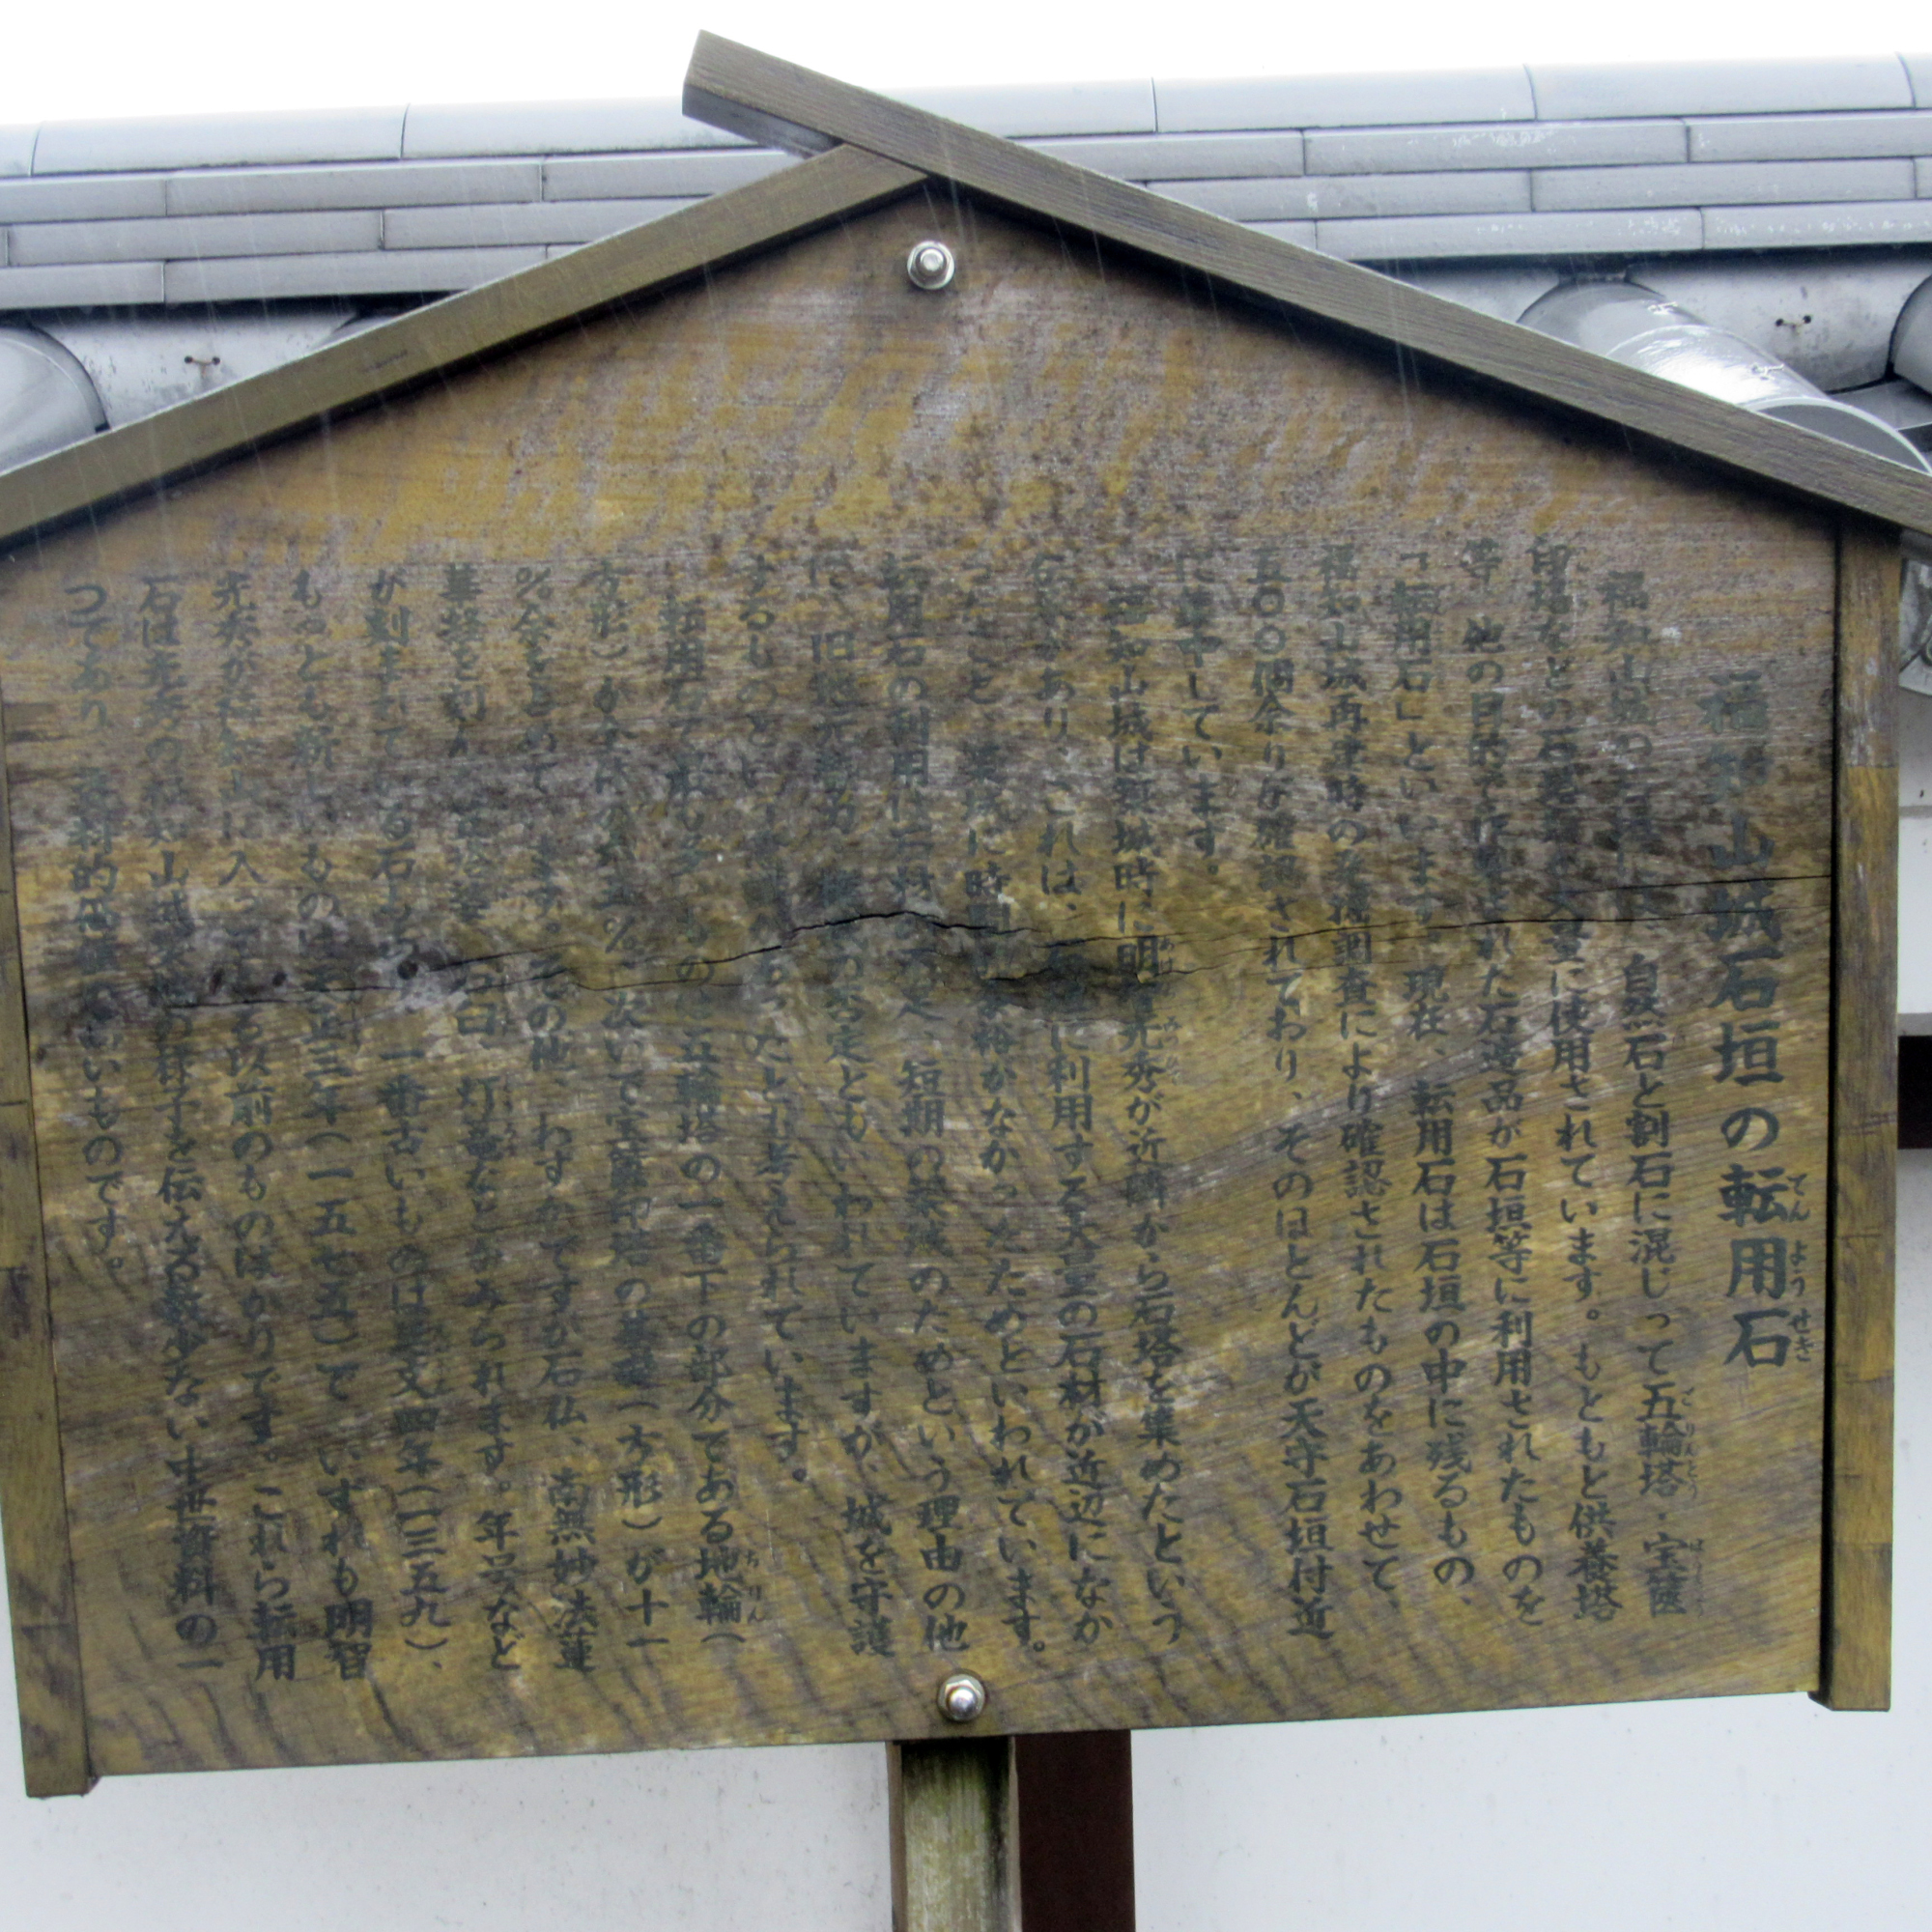 福知山城石垣の転用石
てん よう せき
福知山城の石垣には、自然石と割石に混じって五輪塔・宝篋
ごりんとう ほうきょう
印塔などの石造品が大量に使用されています。もともと供養塔
等、他の目的で作られた石造品が石垣等に利用されたものを
「転用石」といいます。現在、転用石は石垣の中に残るもの、
福知山城再建時の発掘調査により確認されたものをあわせて
五〇〇個余りが確認されており、そのほとんどが天守石垣付近
に集中しています。
福知山城は築城時に明智光秀が近隣から石塔を集めたという
あり、これは、石垣に利用する大量の石材が近辺になか
こと、築城に時間 余裕がなかったためといわれています。
転用石の利用は 短期の築城のためという理由の他
に、旧地元勢力 否定ともいわれていますが、城を守護
するしるの たとも考えられています。
転用石 五輪塔の一番下の部分である地輪（
ちりん
方形）が 次いで宝篋印塔の基礎（方形）が十一
%を占めています。その他、わずかですが石仏、南無妙法蓮
華経を刻ん 石臼、灯篭などもみられます。年号など
が刻まれている石 一番古いものは延文四年（一三五九）、
もっとも新しいものは天正三年（一五七五）で、いずれも明智
光秀が 入 る以前のものばかりです。これら転用
石は光秀の福知山城 の様子を伝える数少ない中世資料の一
つであり、資料的価値の高いものです。